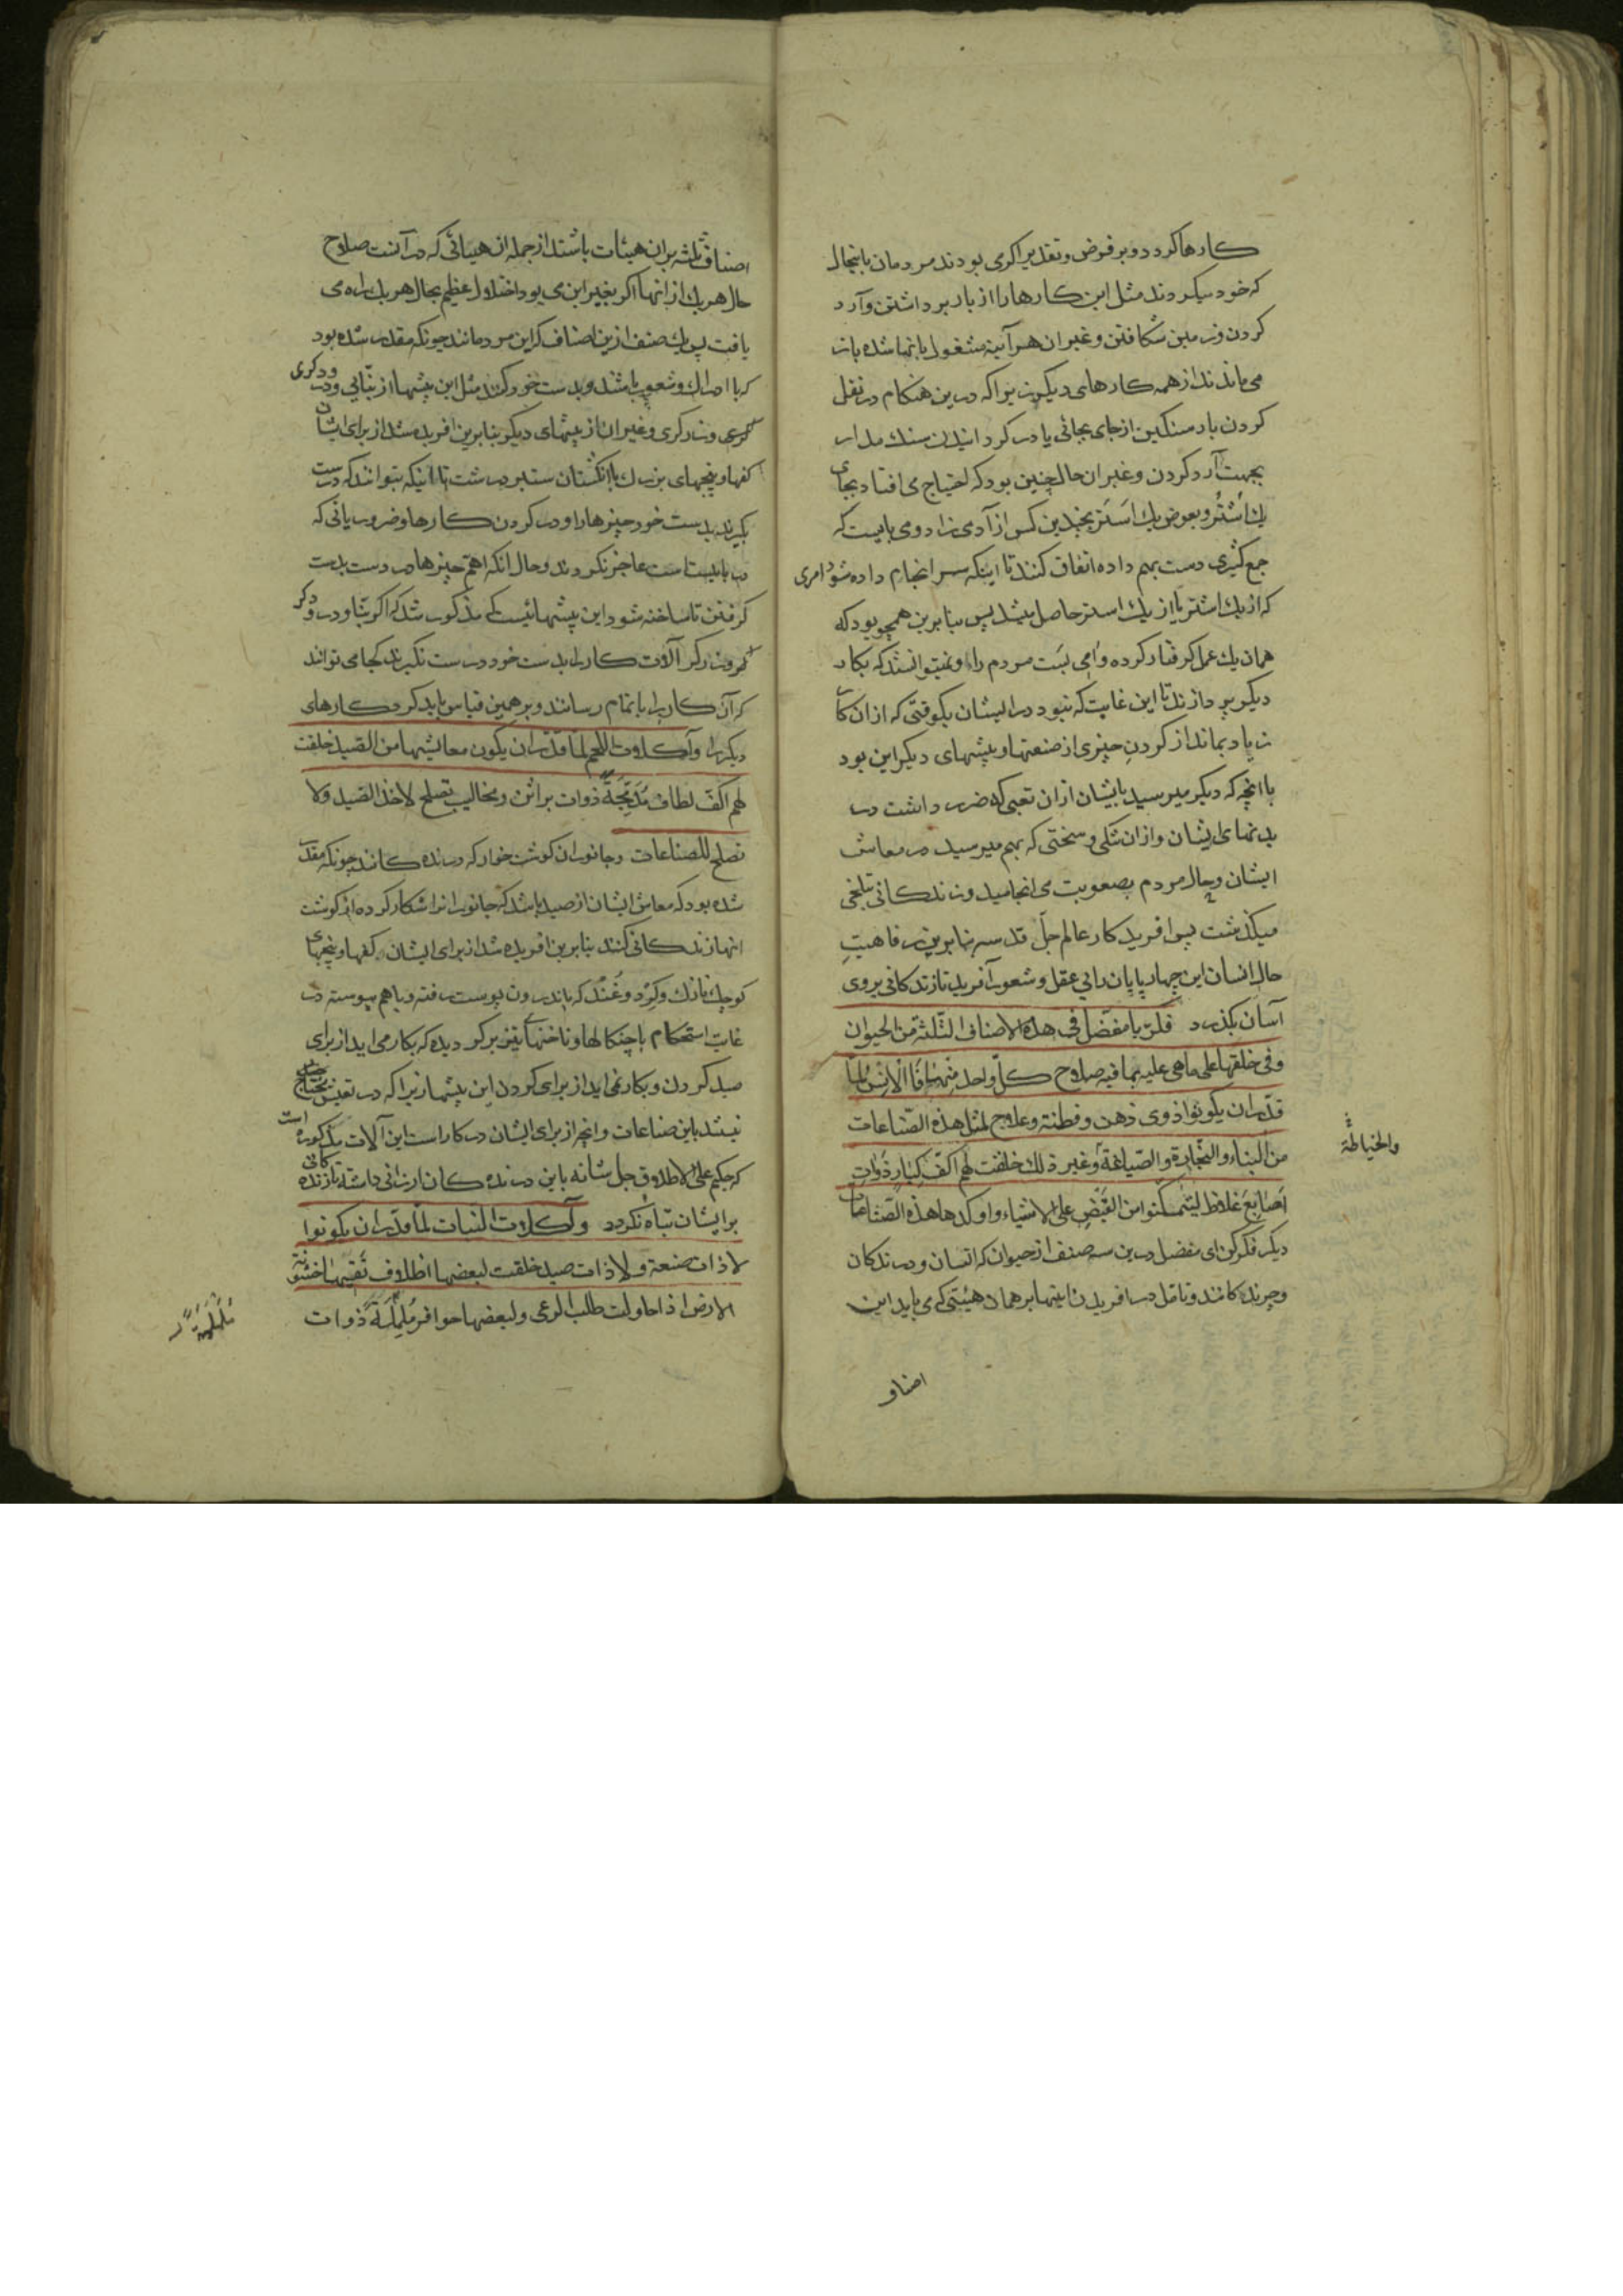 کارها کردد و بر فرض و تقدیر اکر می بودند مردمان باینحال
که خود میکردند مثل این کارها را از بار برداشتن و آرد
کردن و زمین شکافتن و غیر ان هر آینه مشغول بانها شده باز
می ماندند از همه کارهای دیکر زیرا که درین هنکام در نقل
کردن بار سنکین از جای بجائی یا در کردانیدن سنك مدار
بجهت آرد کردن و غیر ان حال چنین بود که احتیاج می افتاد بجای
یك اُشتُر و بعوض یك اَستَر بچندین کس از آدمی زاد و می بایست که
جمع کثیری دست بهم داده اتفاق کنند تا اینکه سر انجام داده شود امری
که از یك اشتر یا از یك استر حاصل میشد پس بنابرین همچو بود که
همان یك عمل کرفتار کرده وامی بست مردم را و نمیتوانستند که بکار
دیکر پردازند تا این غایت که نبود در ایشان بکوقتی که از ان کار
زیاد بماند از کردن چیزی از صنعتها و پیشهای دیکر این بود
با انچه که دیکر میرسید بایشان از ان تعبی که ضرر داشت در
بدنهای ایشان و از ان تنکی و سختی که بهم میرسید در معاش
ایشان و حال مردم بصعوبت می انجامید و زندکانی بتلخی
میکذشت پس افرید کار عالم جلّ قدسه بنابرین رفاهیت
حال انسان این چهارپایان را بی عقل و شعور آفرید تا زندکانی بروی
آسان بکذرد فکر یا مفضّل فی هذه الاصناف الثلثة من الحیوان
و فی خلقها علی ما هی علیه بما فیه صلاح کلّ واحد منها فالانس لمّا
قدّر ان یکونوا ذوی ذهن و فطنة و علاج لمثل هذه الصّناعات
من البناء و النّجارة و الصّیاغة و غیر ذلك خلقت لهم اکفّ کبار ذوات
والخیاطة
اصابع غلاظ لیتمکّنوا من القبض علی الاشیاء و اوکدها هذه الصّناعات
دیکر فکر کن ای مفضل درین سه صنف از حیوان که انسان و درندکان
و چرندکانند و تامل در افریدن اینها بر همان هیئتی که می باید این
اصناف
اصناف ثلثه بران هیئات باشند از جمله ان هیاتی که در آنست صلاح
حال هر یك از انها اکر بغیر این می بود اختلال عظیم بحال هر یك راه می
یافت پس یك صنف ازین اصناف که این مردمانند چونکه مقدر شده بود
که با ادراك و شعور باشند و بدست خود کنند مثل این پیشها از بنّایی و درودکری
کری و زرکری و غیر ان از پیشهای دیکر بنابرین افریده شد از برای ایشان
کفها و پنجهای بزرك با انکشتان ستبر درشت تا اینکه بتوانند که درست
بکیرند بدست خود چیزها را و در کردن کارها و ضروریاتی که
در بایست است عاجز نکردند و حال انکه اهمّ چیزها در دست بدست
کرفتن تا ساخته شود این پیشهائیست که مذکور شد که اکر بنّا و درودکر
و زرکر آلات کار را بدست خود درست نکیرند کجا می توانند
که آن کار را باتمام رسانند و بر همین قیاس باید کرد کارهای
دیکر را و آکلات اللحم لمّا قدّر ان یکون معایشها من الصّید خلقت
لهم اکفّ لطاف مُدَمَّجة ذوات براثن و مخالیب تصلح لاخذ الصّید و لا
تصلح للصناعات و جانوران کوشت خوار که درنده کانند چونکه مقدر
شده بود که معاش ایشان از صید باشد که جانوران را شکار کرده از کوشت
انها زندکانی کنند بنابرین افریده شد از برای ایشان کفها و پنجهای
کوچك نازك و کرد و غند که باندرون پوست رفته و باهم پیوسته در
غایت استحکام با چنکالها و ناخنهای تیز برکردیده که بکار می اید از برای
صید کردن و بکار نمی اید از برای کردن این پیشها زیرا که در تعیش محتاج
نیستند باین صناعات و انچه از برای ایشان در کار است این آلات مذکوره است
که حکیم علی الاطلاق جل شانه باین درنده کان ارزانی داشته تا زنده کانی
بر ایشان تباه نکردد و آکلات النبات لمّا قدّر ان یکونوا
لا ذات صنعة و لا ذات صید خلقت لبعضها اظلاف تقیها خشونة
الارض اذا حاولت طلب الرعی و لبعضها حوافر ململمة ذوات